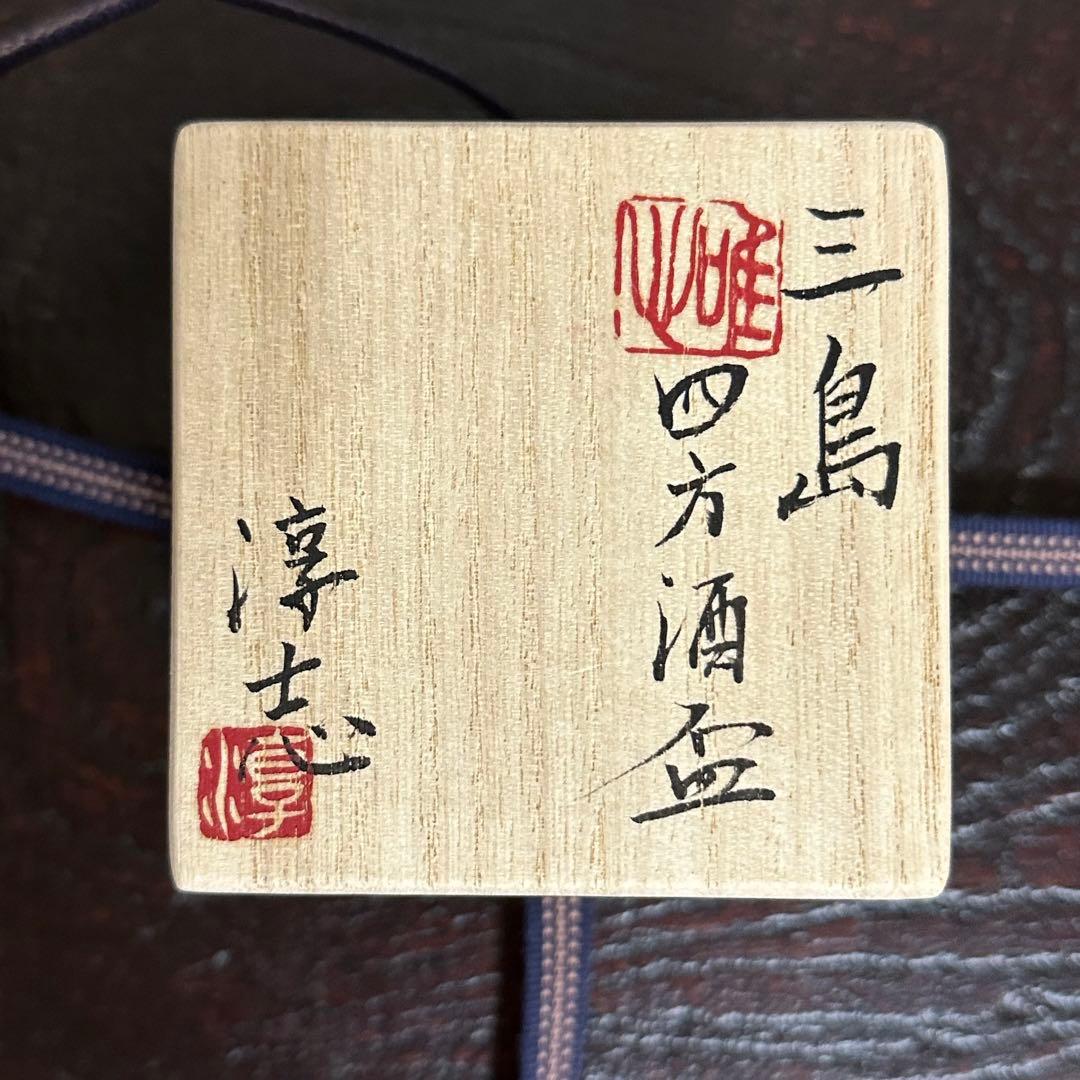 三島
四方酒盃
淳志
淳